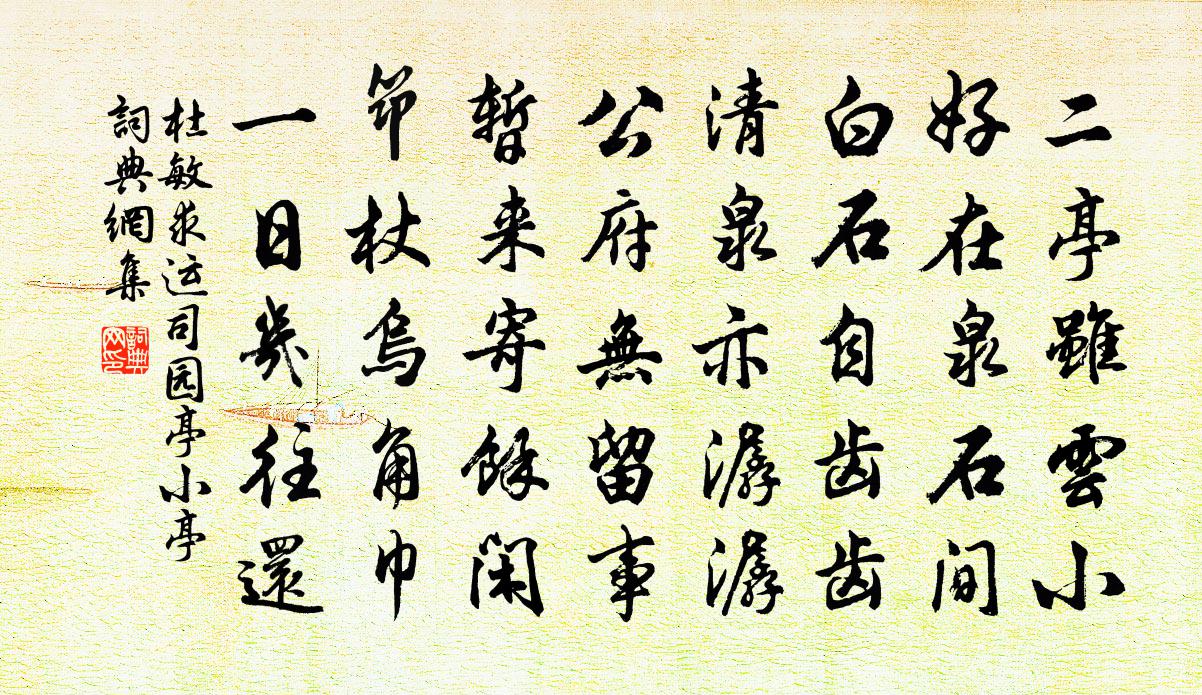 二亭雖雲小
好在泉石间
白石自齿齿
清泉亦潺潺
公府無留事
暫来寄餘閑
笻杖烏角巾
一日幾往還
杜敏求运司园亭小亭
詞典網集
詞典网印